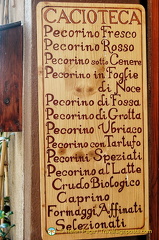 CACIOTECA
Pecorino Fresco
Pecorino Rosso
Pecorino sotto Cenere
Pecorino in Foglie
di Noce
Pecorino di Fossa
Pecorino di Grotta
Pecorino Ubriaco
Pecorino con Tartufo
Pecorini Speziati
Pecorino al Latte
Crudo Biologico
Caprino
Formaggi Affinati
Selezionati